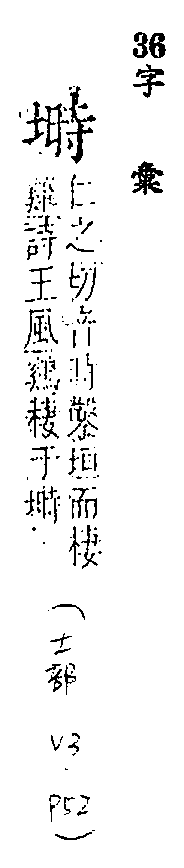 36字彙
塒
仁之切音時鑿垣而棲
雞詩王風鷄棲于塒.
(土部 V3. P52)